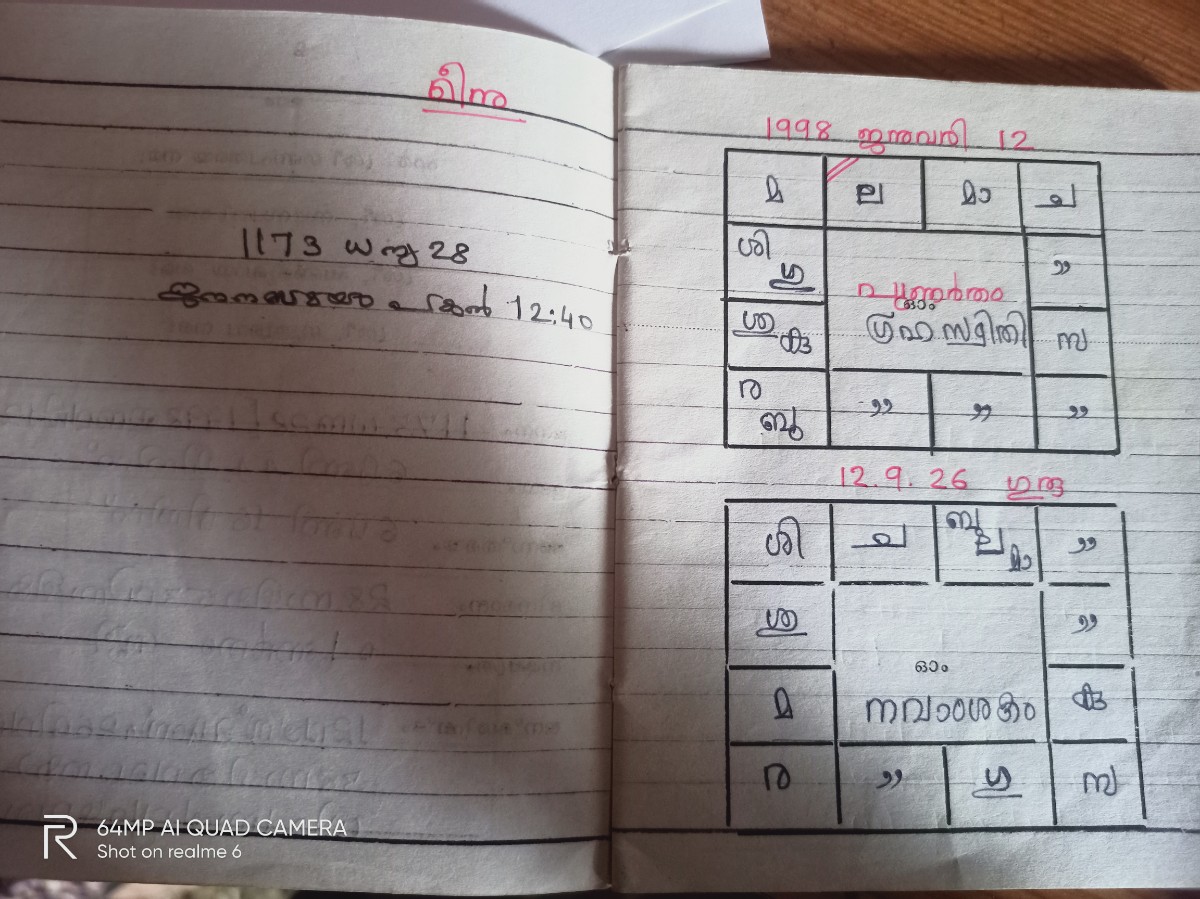 മീനു
1173 ധനു 28
ജനനസമയം പകൽ 12:40
1998 ജനുവരി 12
മ ല മാ ച
ശി ഗു ”
പുണർതം
ഓം
ശു കു ഗ്രഹസ്ഥിതി സ
ര ബു ” ” ”
12.9.26 ഗുരു
ശി ച ബു ല മാ ”
ശു ”
ഓം
മ നവാംശകം കു
ര ” ഗു സ
64MP AI QUAD CAMERA
Shot on realme 6